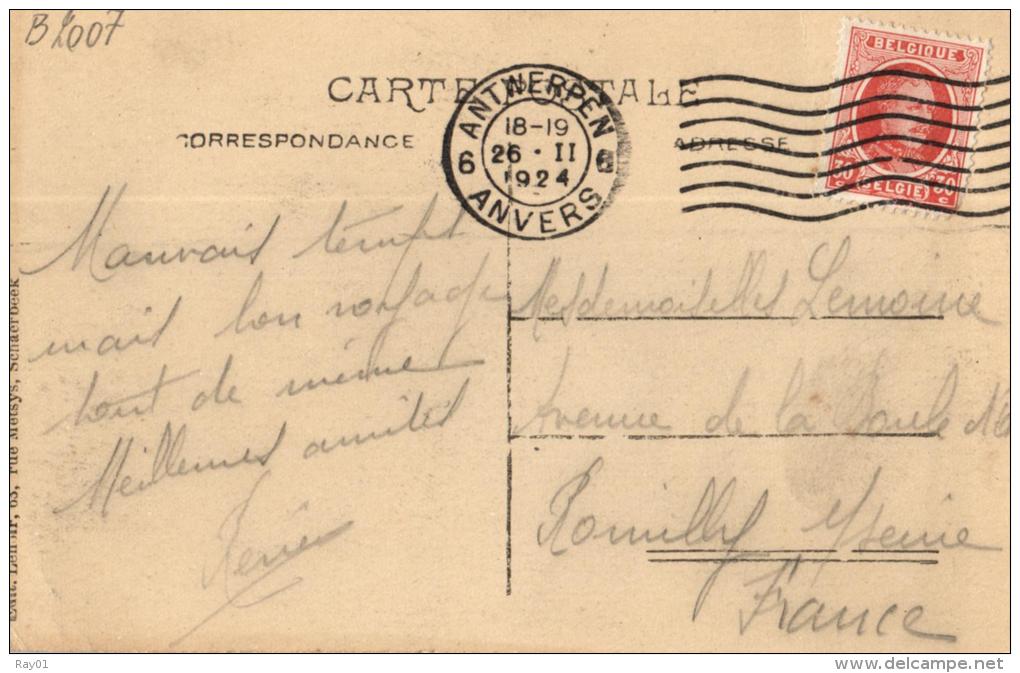 B 2007
CARTE POSTALE
CORRESPONDANCE
ADRESSE
ANTWERPEN
18-19
26 · II
1924
6 6
ANVERS
BELGIQUE
30 c 30 c
BELGIË
Mauvais temps
mais bon voyage
tout de même
Meilleures amitiés
Mesdemoiselles Lemoine
Avenue de la
Romilly s/Seine
France
Edit. Lenoir, 63, rue Metsys, Schaerbeek
Ray01
delcampe.net